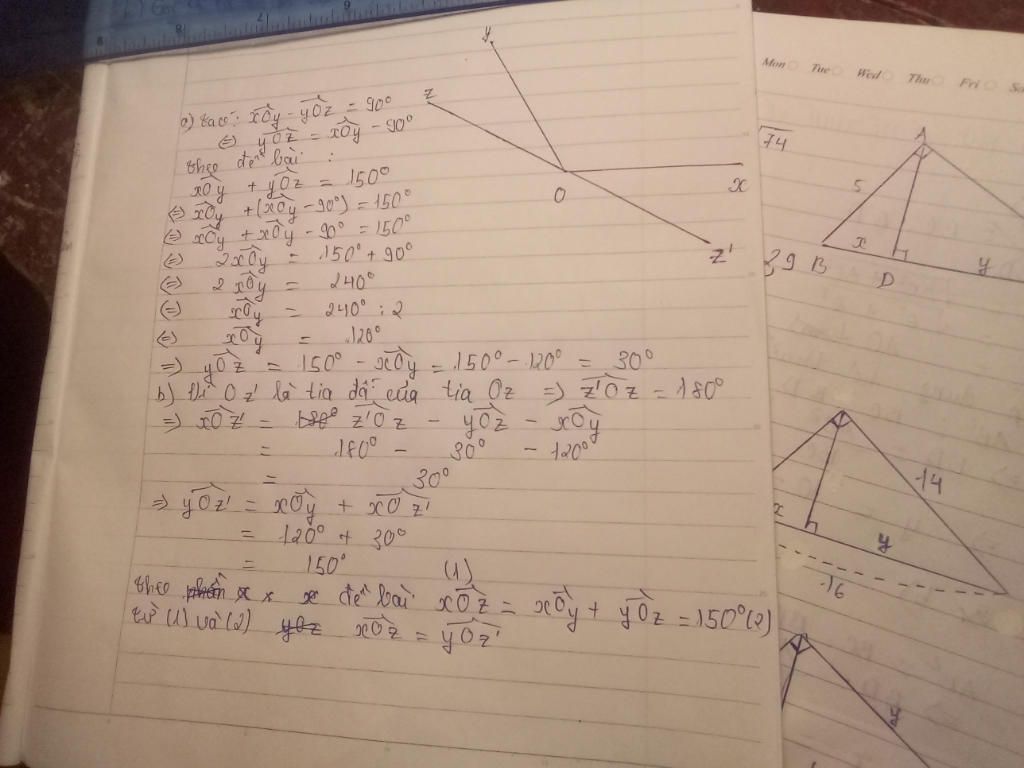 y
z
O
x
z'
a) Ta có: xÔy - yÔz = 90°
(=) yÔz = xÔy - 90°
theo đề bài :
xÔy + yÔz = 150°
(=) xÔy + (xÔy - 90°) = 150°
(=) xÔy + xÔy - 90° = 150°
(=) 2xÔy = 150° + 90°
(=) 2xÔy = 240°
(=) xÔy = 240° : 2
(=) xÔy = 120°
=) yÔz = 150° - xÔy = 150° - 120° = 30°
b) Vì Oz' là tia đối của tia Oz =) z'Ôz = 180°
=) xÔz' = 180° z'Ôz - yÔz - xÔy
= 180° - 30° - 120°
= 30°
=) yÔz' = xÔy + xÔz'
= 120° + 30°
= 150° (1)
theo đề bài xÔz = xÔy + yÔz = 150° (2)
từ (1) và (2) yOz xÔz = yÔz'
Mon Tue Wed Thu Fri
√74
A
5
x
y
B
D
14
x
y
16
y